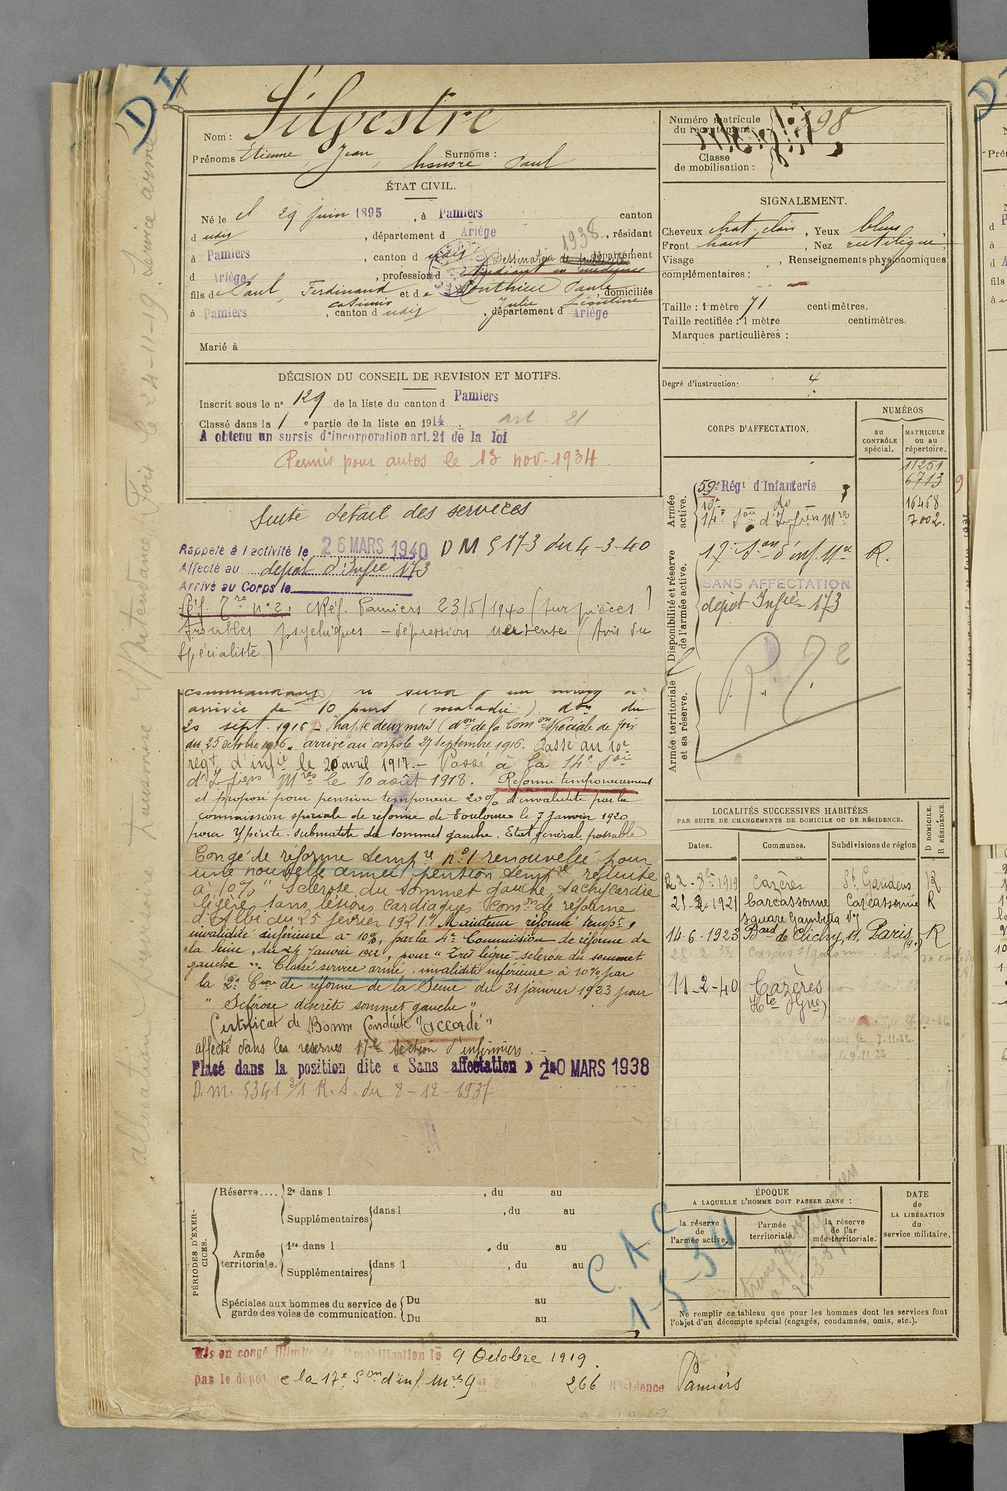 D I
Nom : Silvestre
Prénoms Etienne, Jean, Surnoms :
honoré Paul
ÉTAT CIVIL.
Né le 29 juin 1895, à Pamiers canton
d udit, département d Ariège, résidant
1938
à Pamiers, canton d udit, département
Dessinateur
d Ariège, profession d étudiant en médecine
fils de Paul, Ferdinand et de Ponthieu Paule domiciliés
casimir Julie Léontine
à Pamiers, canton d udit, département d Ariège
Marié à
DÉCISION DU CONSEIL DE REVISION ET MOTIFS.
Inscrit sous le n° 129 de la liste du canton d Pamiers
Classé dans la 1 e partie de la liste en 1914. art. 21
A obtenu un sursis d'incorporation art. 21 de la loi
Permis pour autos le 13 nov. 1934
Suite détail des services
Rappelé à l'activité le 26 MARS 1940 DM 5173 du 4-3-40
Affecté au dépôt d'Infie 173
Arrivé au Corps le
Réf. Pamiers 23/5/1940 (sur pièces)
troubles psychiques - dépression nerveuse (Avis du
spécialiste)
arrivés de 10 jours (maladie) don du
20 sept. 1916. Inapte deux mois (don de la Comon spéciale de Foix
du 25 octobre 1916. arrivé au corps le 27 septembre 1916. Passé au 10e
régt. d'infie le 20 avril 1917. - Passé à la 14e Son
d'Infiers Mres le 10 août 1918. Réformé temporairement
et proposé pour pension temporaire 20% d'invalidité par la
commission spéciale de réforme de Toulouse le 7 janvier 1920
pour Ypérité. submatité du sommet gauche. Etat général passable
Congé de réforme tempre n°1 renouvelée pour
une nouvelle année (pention tempre réduite
à 10% "Sclérose du sommet gauche, tachycardie
légère sans lésions cardiaques Comon de réforme
d'Albi du 25 février 1921. Maintenu réformé tempre,
invalidité inférieure à 10%, par la 4e Commission de réforme de
la Seine, du 24 janvier 1922, pour "très légère sclérose du sommet
gauche". Classé service armé, invalidité inférieure à 10% par
la 2e Con de réforme de la Seine du 31 janvier 1923 pour
" Sclérose discrète sommet gauche"
Certificat de Bonne Conduite "accordé"
affecté dans les réserves 17e section d'infirmiers. -
Placé dans la position dite « Sans affectation » le 20 MARS 1938
D.M. 5341 2/1 R.S. du 8-12-1937
PÉRIODES D'EXERCICES.
Réserve.... 2e dans l , du au
Supplémentaires dans l , du au
Armée territoriale. 1re dans l , du au
Supplémentaires dans l , du au
Spéciales aux hommes du service de garde des voies de communication. Du au
Du au
Mis en congé illimité de démobilisation le 9 Octobre 1919.
par le dépôt de la 17e Son d'inf. Mres 266 Résidence Pamiers
Numéro matricule
du recrutement : 198
Classe
de mobilisation :
SIGNALEMENT.
Cheveux chat. clair, Yeux bleus
Front haut, Nez rectiligne
Visage , Renseignements physionomiques
complémentaires :
Taille : 1 mètre 71 centimètres.
Taille rectifiée : 1 mètre centimètres.
Marques particulières :
Degré d'instruction : 4
CORPS D'AFFECTATION.
NUMÉROS
AU CONTRÔLE spécial.
MATRICULE ou au répertoire.
Armée active.
11251
59e Régt d'Infanterie 6713
10e do 16468
14e Son d'Infiers Mres 7002.
Disponibilité et réserve de l'armée active.
17e Son d'inf. Mre R.
SANS AFFECTATION
dépôt Infie 173
Armée territoriale et sa réserve.
LOCALITÉS SUCCESSIVES HABITÉES
PAR SUITE DE CHANGEMENTS DE DOMICILE OU DE RÉSIDENCE.
Dates. Communes. Subdivisions de région D DOMICILE. R RÉSIDENCE
22-8bre 1919 Cazères St Gaudens R
21-2-1921 Carcassonne Carcassonne R
square Gambetta
14-6-1923 Bard de Clichy, 11, Paris R
11-2-40 Cazères
(Hte Gne)
ÉPOQUE
A LAQUELLE L'HOMME DOIT PASSER DANS :
la réserve de l'armée active.
l'armée territoriale.
la réserve de l'armée territoriale.
DATE de LA LIBÉRATION du service militaire.
CAC
1-5-34
Ne remplir ce tableau que pour les hommes dont les services font
l'objet d'un décompte spécial (engagés, condamnés, omis, etc.).